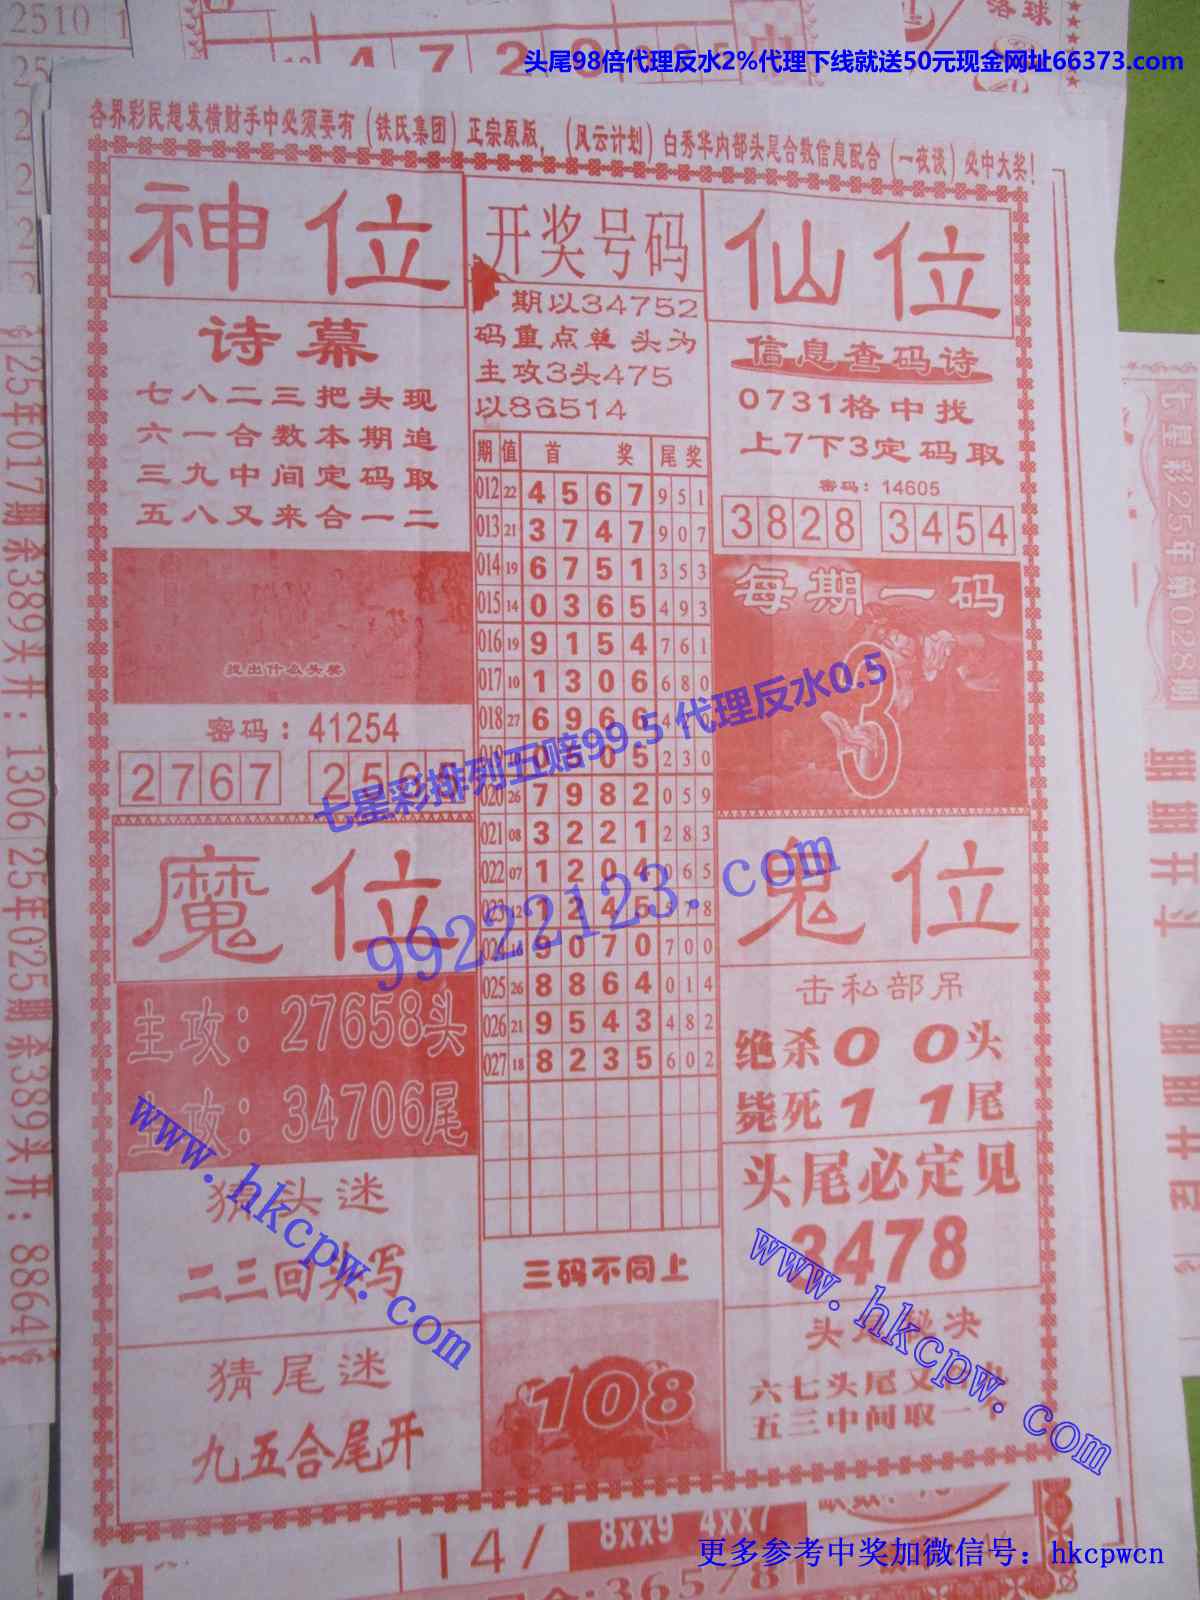 头尾98倍代理反水2%代理下线就送50元现金网址66373.com
各界彩民想发横财手中必须要有（铁氏集团）正宗原版，（风云计划）白秀华内部头尾合数信息配合（一夜谈）必中大奖！
神位
诗幕
七八二三把头现
六一合数本期追
三九中间定码取
五八又来合一二
提出什么头奖
密码：41254
2767
魔位
主攻：27658头
主攻：34706尾
猜头迷
二三回头写
猜尾迷
九五合尾开
开奖号码
期以34752
码重点单 头为
主攻3头475
以86514
期 值 首 奖 尾奖
012 22 4 5 6 7 9 5 1
013 21 3 7 4 7 9 0 7
014 19 6 7 5 1 3 5 3
015 14 0 3 6 5 4 9 3
016 19 9 1 5 4 7 6 1
017 10 1 3 0 6 6 8 0
018 27 6 9 6 6
0 5 2 3 0
020 26 7 9 8 2 0 5 9
021 08 3 2 2 1 2 8 3
022 07 1 2 0 4 0 6 5
023 12 1 2 4 5 5 7 8
024 16 9 0 7 0 7 0 0
025 26 8 8 6 4 0 1 4
026 21 9 5 4 3 4 8 2
027 18 8 2 3 5 6 0 2
三码不同上
108
仙位
信息查码诗
0731格中找
上7下3定码取
密码：14605
3828 3454
每期一码
3
鬼位
击私部吊
绝杀0 0头
毙死1 1尾
头尾必定见
3478
六七头尾又
五三中间取一个
25年017期杀389头开：1306
25年025期杀389头开：8864
七星彩排列五赔99.5 代理反水0.5
99222123.com
www.hkcpw.com
www.hkcpw.com
147
8xx9 4xx7
更多参考中奖加微信号：hkcpwcn